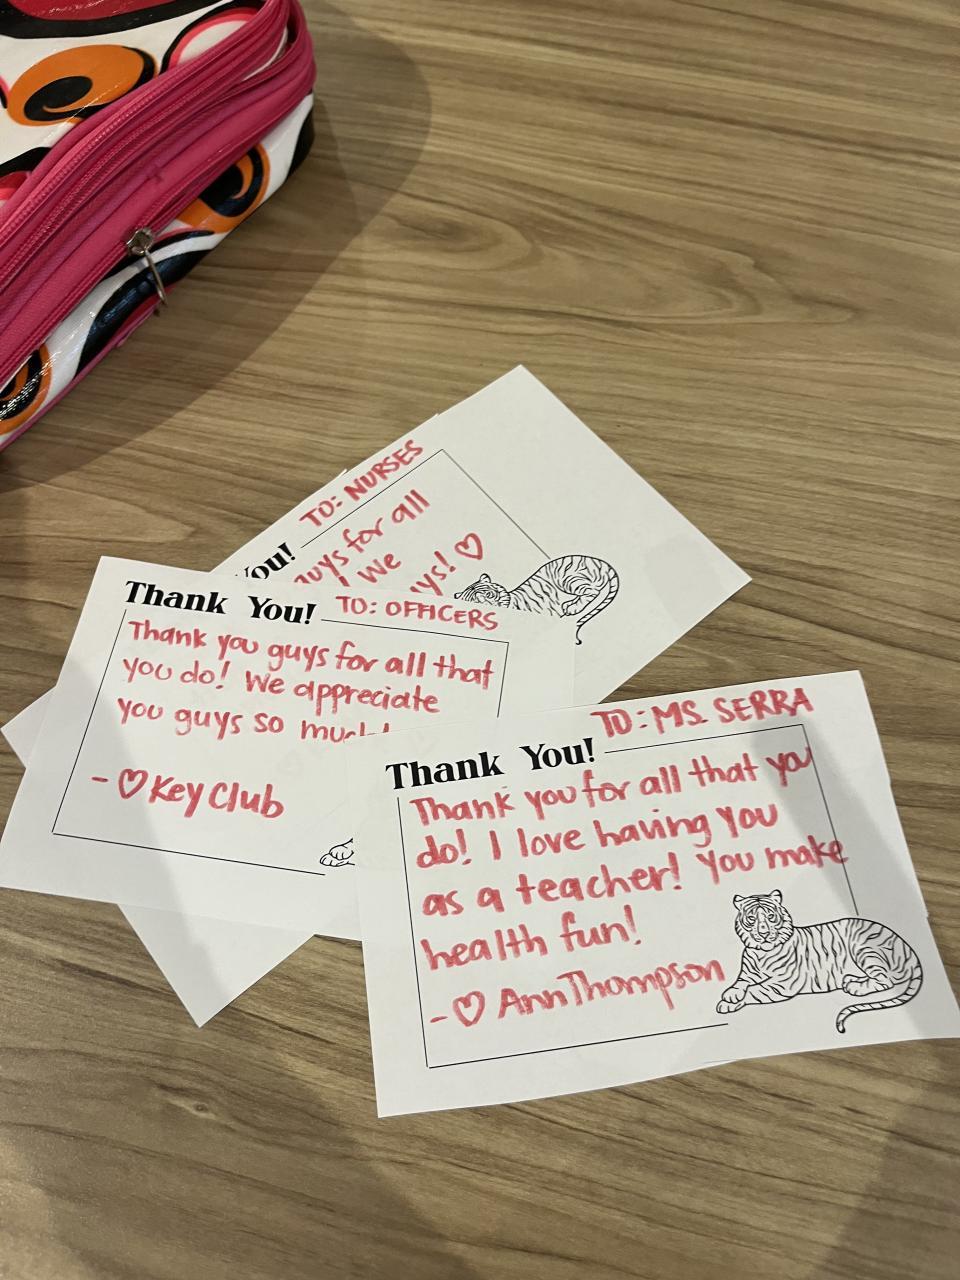 TO: NURSES
You!
guys for all
! We
guys! ♡
Thank You! TO: OFFICERS
Thank you guys for all that
you do! We appreciate
you guys so much!
- ♡ Key Club
TO: MS. SERRA
Thank You!
Thank you for all that you
do! I love having you
as a teacher! You make
health fun!
- ♡ Ann Thompson